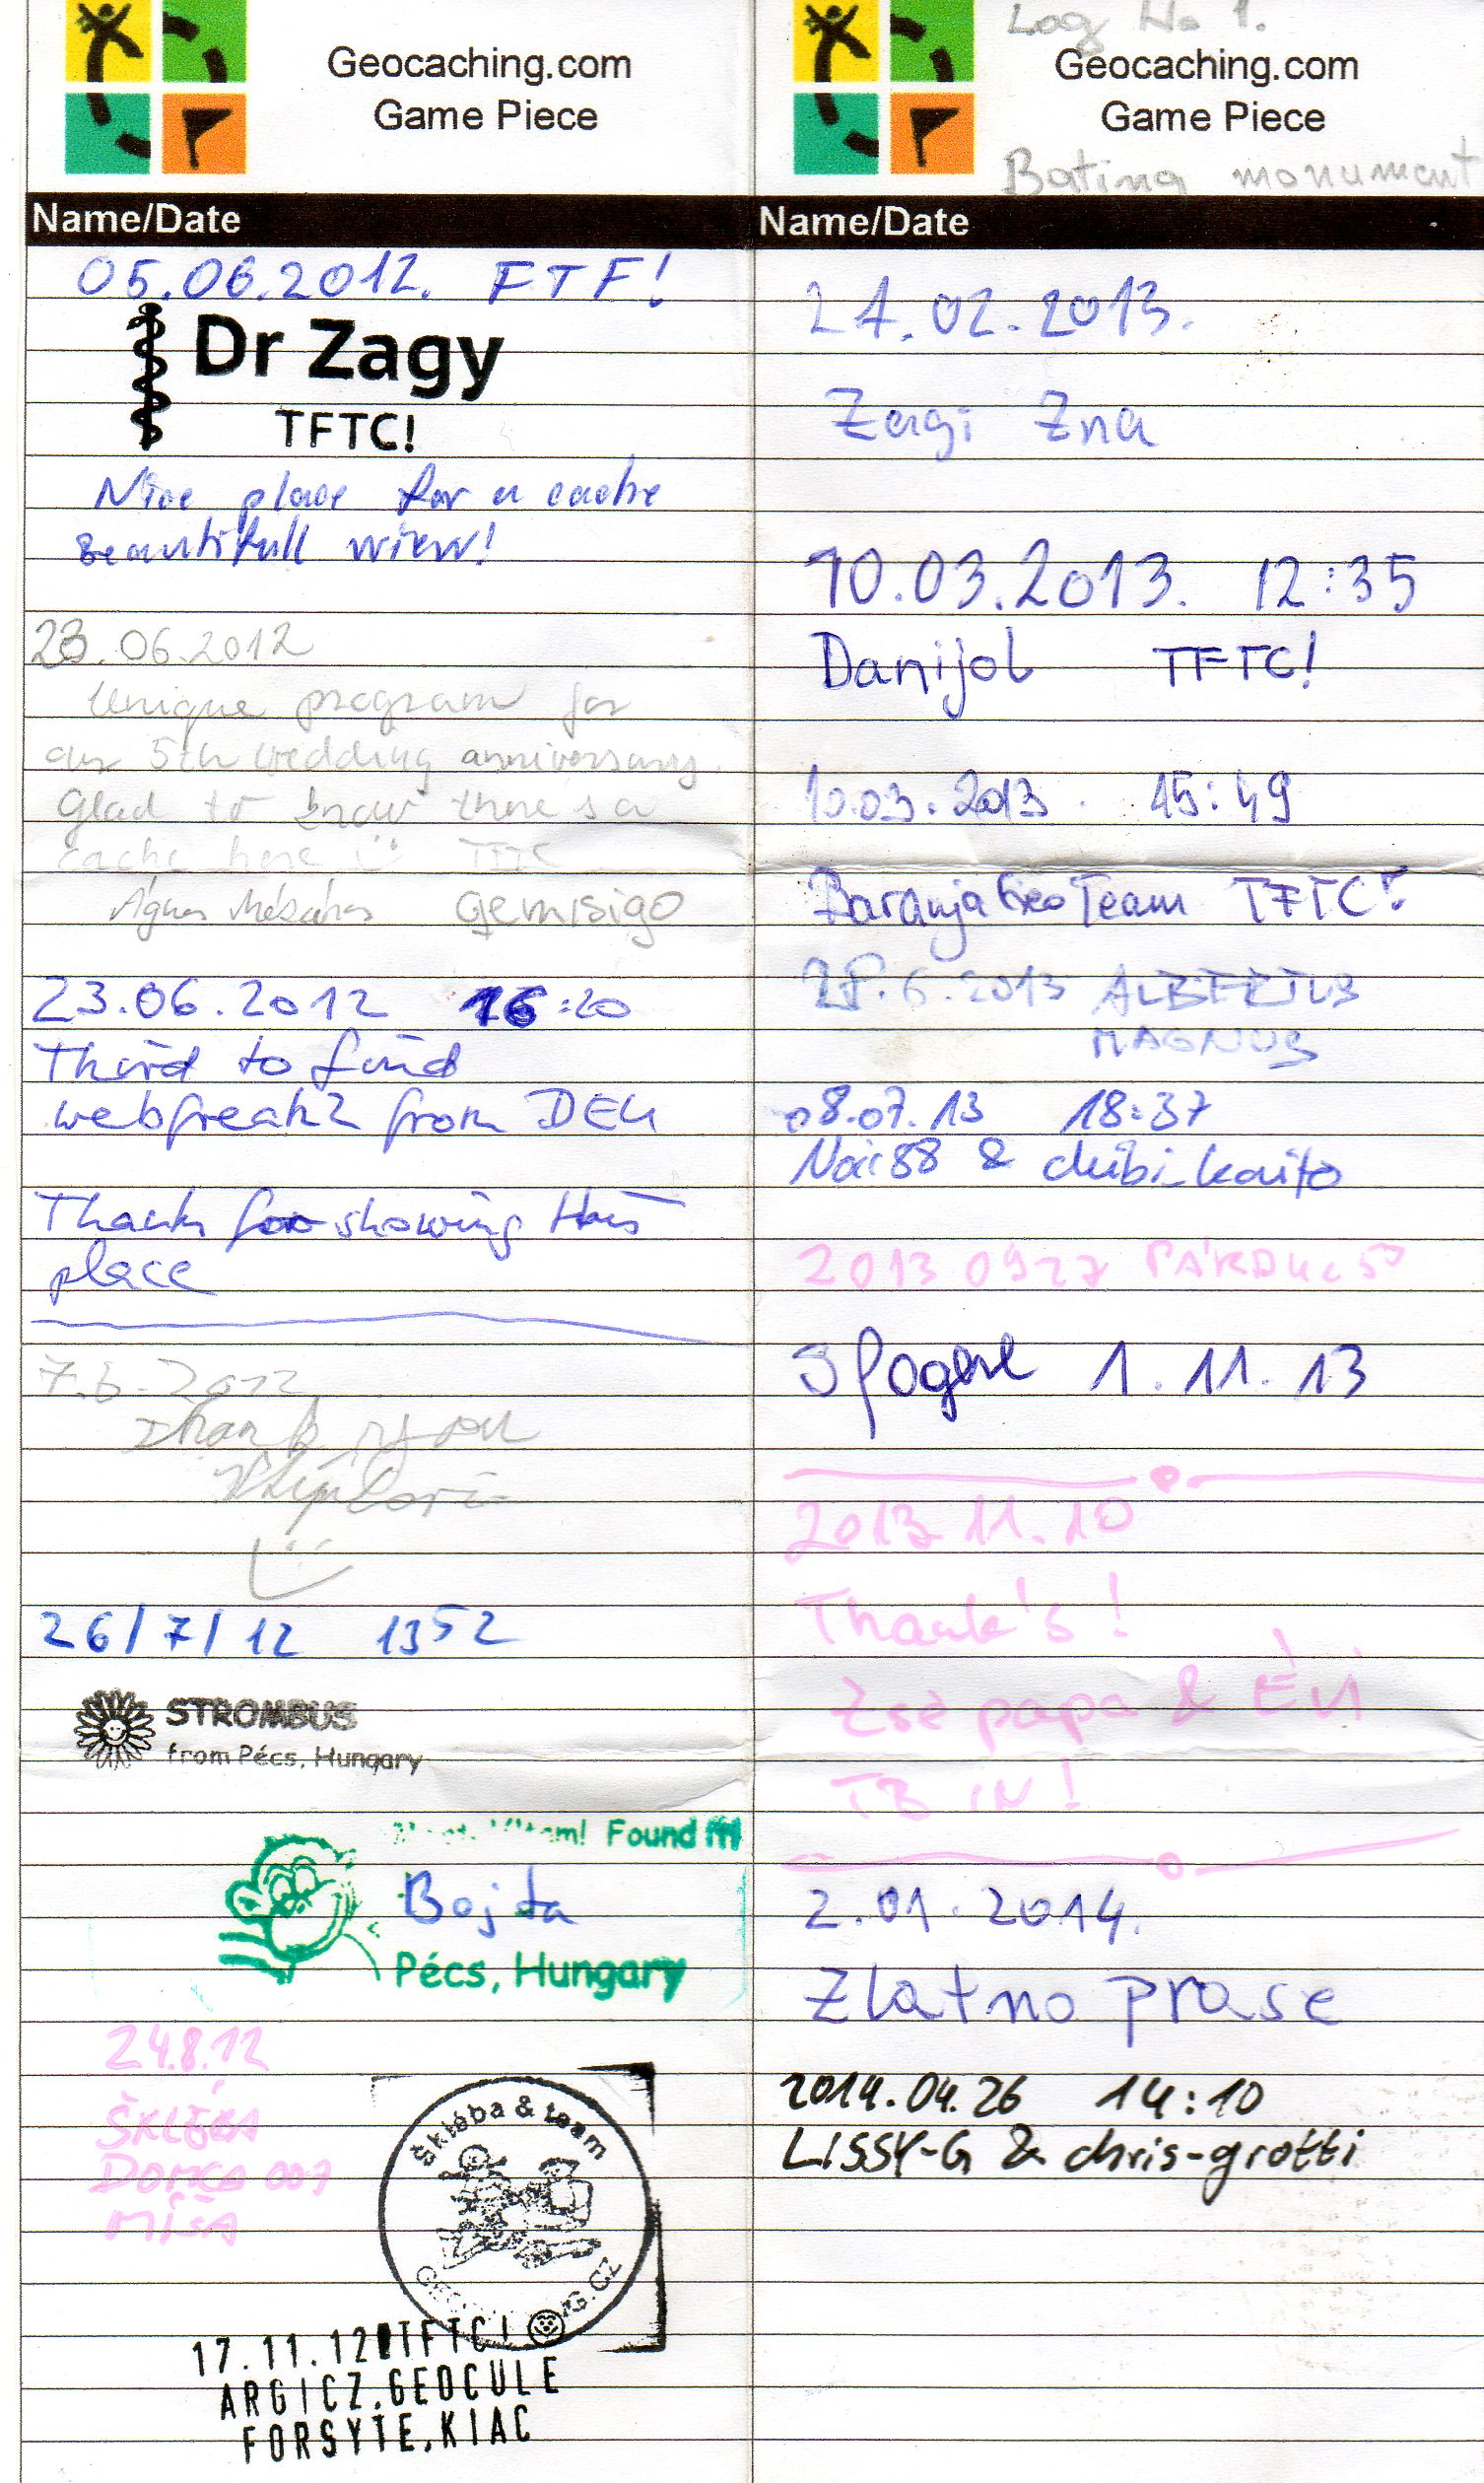 Geocaching.com
Game Piece
Name/Date
05.06.2012. FTF!
Dr Zagy
TFTC!
Nice place for a cache
Beautifull wiew!
23.06.2012
Unique program for
our 5th wedding anniversary.
Glad to know there's a
cache here TFTC
Ágnes Mészáros gemisigo
23.06.2012 16:20
Third to find
webfreak2 from DEU
Thank for showing this
place
2012
Thank you
26/7/12 13 52
STROMBUS
from Pécs, Hungary
Found !!!
Bojta
Pécs, Hungary
24.8.12
ŠKLÉBA
DOMČA 007
MÍŠA
Škléba & team
17.11.12 TFTC!
ARGICZ.GEOCULE
FORSYTE.KIAC
Log No 1.
Geocaching.com
Game Piece
Batina monument
Name/Date
21.02.2013.
Zagi Zna
10.03.2013. 12:35
Danijol TFTC!
10.03.2013. 15:49
Baranja Geo Team TFTC!
28.6.2013 ALBERTUS
MAGNUS
08.07.13 18:37
Nari88 & chibi_kaito
2013 0927 PÁRDUC53
1.11.13
2013 11.10
Thank's!
Zsé papa & Évi
TB IN!
2.01.2014.
Zlatno prase
2014.04.26 14:10
LISSY-G & chris-grotti